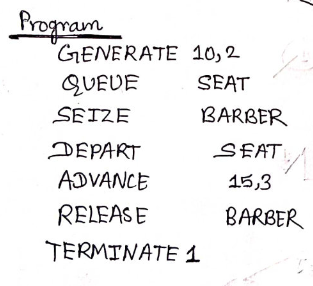 Program
GENERATE 10,2
QUEUE SEAT
SEIZE BARBER
DEPART SEAT
ADVANCE 15,3
RELEASE BARBER
TERMINATE 1